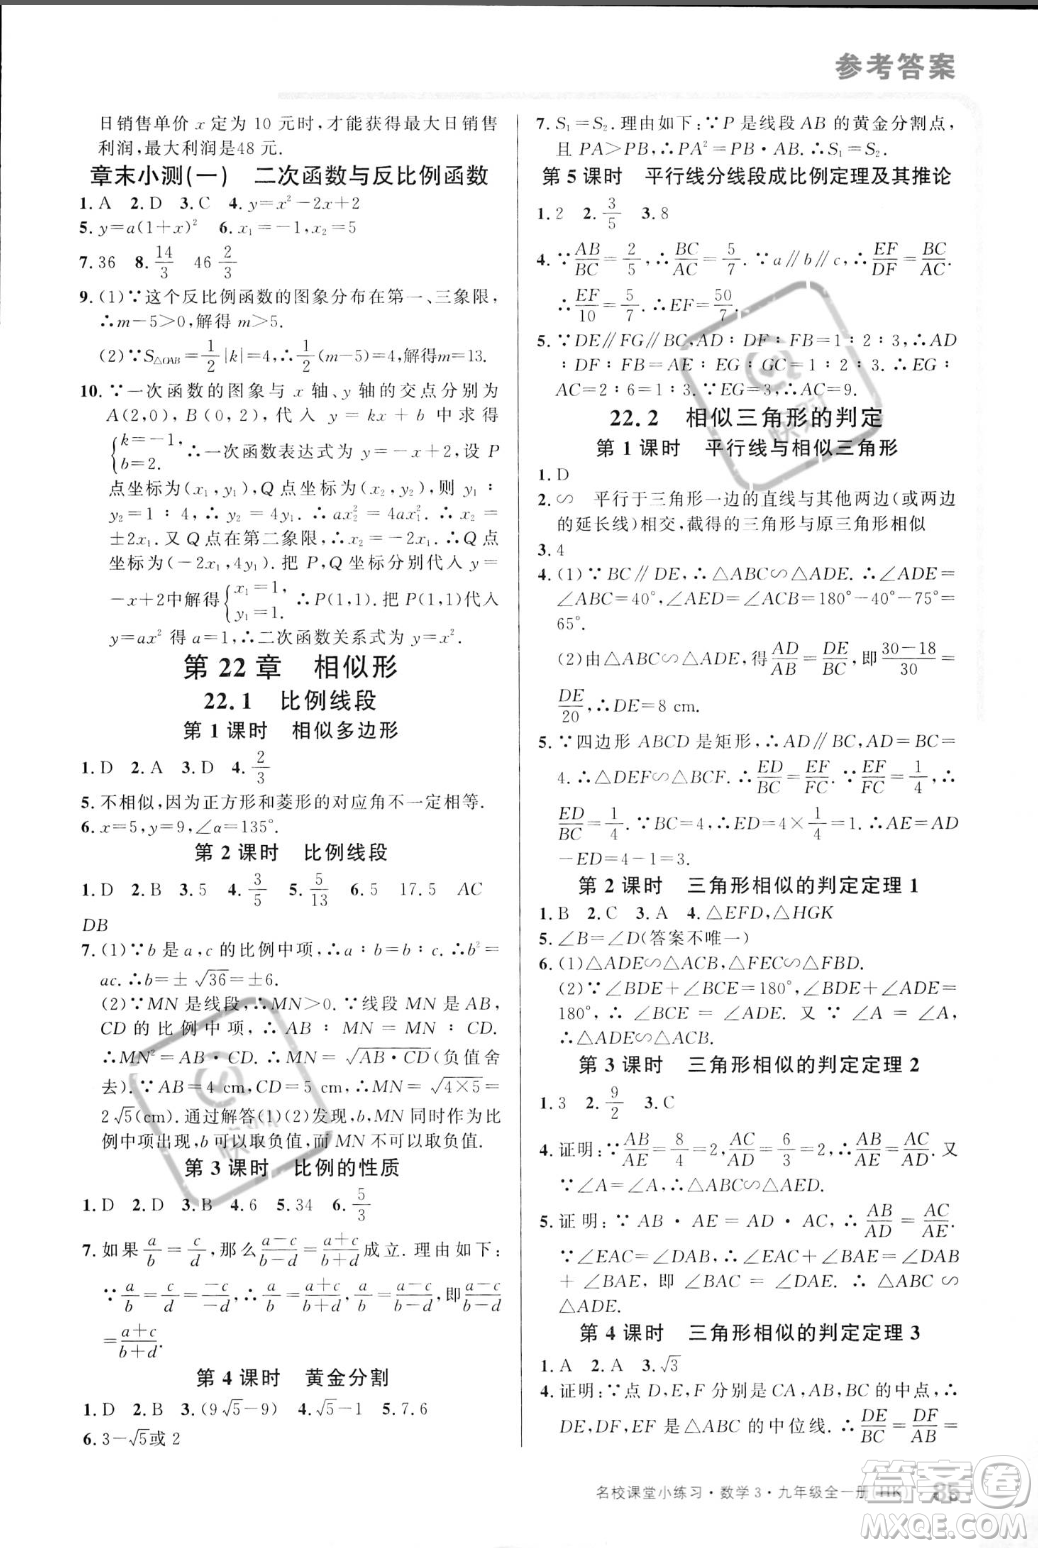 参考答案
日销售单价 x 定为 10 元时,才能获得最大日销售
利润,最大利润是48 元.
章末小测(一) 二次函数与反比例函数
1. A 2. D 3. C 4. y=x²-2x+2
5. y=a(1+x)² 6. x₁=-1,x₂=5
7. 36 8. 14/3 46 2/3
9. (1)∵这个反比例函数的图象分布在第一、三象限,
∴m-5>0,解得 m>5.
(2)∵S△OAB=1/2|k|=4,∴1/2(m-5)=4,解得m=13.
10. ∵一次函数的图象与 x 轴、y 轴的交点分别为
A(2,0),B(0,2),代入 y=kx+b 中求得
{k=-1, b=2. ∴一次函数表达式为 y=-x+2,设 P
点坐标为(x₁,y₁),Q 点坐标为(x₂,y₂),∵y₁:
y₂=1:4,∴ax₂²=4ax₁².∴x₂=
±2x₁.又 Q 点在第二象限,∴x₂=-2x₁.∴Q 点
坐标为(-2x₁,4y₁).把 P,Q 坐标分别代入 y=
-x+2中解得{x₁=1, y₁=1. ∴P(1,1).把 P(1,1)代入
y=ax² 得 a=1,∴二次函数关系式为 y=x².
第 22 章 相似形
22.1 比例线段
第 1 课时 相似多边形
1. D 2. A 3. D 4. 2/3
5. 不相似,因为正方形和菱形的对应角不一定相等.
6. x=5,y=9,∠α=135°.
第 2 课时 比例线段
1. D 2. B 3. 5 4. 3/5 5. 5/13 6. 5 17.5 AC
DB
7. (1)∵b 是 a,c 的比例中项,∴a:b=b:c.∴b²=
ac.∴b=±√36=±6.
(2)∵MN 是线段,∴MN>0.∵线段 MN 是 AB,
CD 的比例中项,∴AB:MN=MN:CD.
∴MN²=AB·CD.∴MN=√AB·CD(负值舍
去).∵AB=4 cm,CD=5 cm,∴MN=√4×5=
2√5(cm).通过解答(1)(2)发现,同时作为比
例中项出现,b 可以取负值,而 MN 不可以取负值.
第 3 课时 比例的性质
1. D 2. D 3. B 4. 6 5. 34 6. 5/3
7. 如果a/b=c/d,那么(a-c)/(b-d)=(a+c)/(b+d)成立.理由如下:
∵a/b=c/d=(-c)/(-d),∴a/b=(a+c)/(b+d)=(a-c)/(b-d),即(a-c)/(b-d)=
(a+c)/(b+d).
第 4 课时 黄金分割
1. D 2. B 3. (9√5-9) 4. √5-1 5. 7.6
6. 3-√5或 2
7. S₁=S₂.理由如下:∵P 是线段 AB 的黄金分割点,
且 PA>PB,∴PA²=PB·AB.∴S₁=S₂.
第 5 课时 平行线分线段成比例定理及其推论
1. 2 2. 3/5 3. 8
4. ∵AB/BC=2/5,∴BC/AC=5/7.∵a∥b∥c,∴EF/DF=BC/AC.
∴EF/10=5/7.∴EF=50/7.
5. ∵DE∥FG∥BC,AD:DF:FB=1:2:3,∴AD
:DF:FB=AE:EG:GC=1:2:3.∴EG:
AC=2:6=1:3.∵EG=3,∴AC=9.
22.2 相似三角形的判定
第 1 课时 平行线与相似三角形
1. D
2. ∽ 平行于三角形一边的直线与其他两边(或两边
的延长线)相交,截得的三角形与原三角形相似
3. 4
4. (1)∵BC∥DE,∴△ABC∽△ADE.∴∠ADE=
∠ABC=40°,∠AED=∠ACB=180°-40°-75°=
65°.
(2)由△ABC∽△ADE,得AD/AB=DE/BC,即(30-18)/30=
DE/20,∴DE=8 cm.
5. ∵四边形 ABCD 是矩形,∴AD∥BC,AD=BC=
4.∴△DEF∽△BCF.∴ED/BC=EF/FC.∵EF/FC=1/4,∴
ED/BC=1/4.∵BC=4,∴ED=4×1/4=1.∴AE=AD
-ED=4-1=3.
第 2 课时 三角形相似的判定定理 1
1. B 2. C 3. A 4. △EFD,△HGK
5. ∠B=∠D(答案不唯一)
6. (1)△ADE∽△ACB,△FEC∽△FBD.
(2)∵∠BDE+∠BCE=180°,∠BDE+∠ADE
=180°,∴∠BCE=∠ADE. 又∵∠A=∠A,
∴△ADE∽△ACB.
第 3 课时 三角形相似的判定定理 2
1. 3 2. 9/2 3. C
4. 证明:∵AB/AE=8/4=2,AC/AD=6/3=2,∴AB/AE=AC/AD.又
∵∠A=∠A,∴△ABC∽△AED.
5. 证明:∵AB·AE=AD·AC,∴AB/AD=AC/AE.
∵∠EAC=∠DAB,∴∠EAC+∠BAE=∠DAB
+∠BAE,即∠BAC=∠DAE.∴△ABC∽
△ADE.
第 4 课时 三角形相似的判定定理 3
1. A 2. A 3. √3
4. 证明:∵点 D,E,F 分别是 CA,AB,BC 的中点,∴
DE,DF,EF是△ABC的中位线.∴DE/BC=DF/AB=
名校课堂小练习·数学 3·九年级全一册 HK 85
答案圈
MXQE.COM